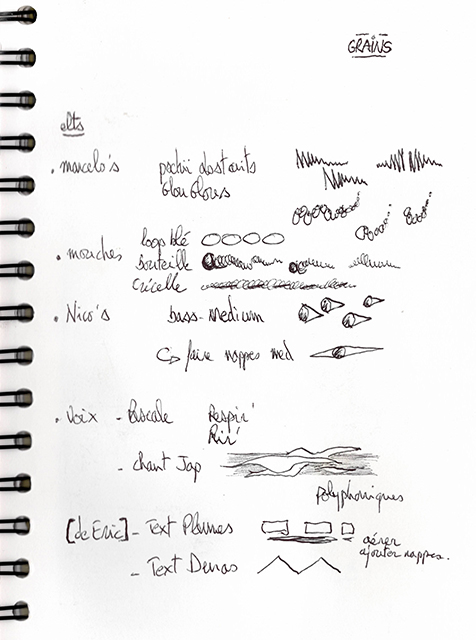 GRAINS
elts
. marcelo's
Glou Glous
. mouches loop blé
bouteille
Crécelle
. Nico's bass-Medium
faire nappes med
. Voix - Pascale Respir'
Rir'
- chant Jap
polyphoniques
[de Eric] - Text Plumes
aérer
ajouter nappes.
- Text